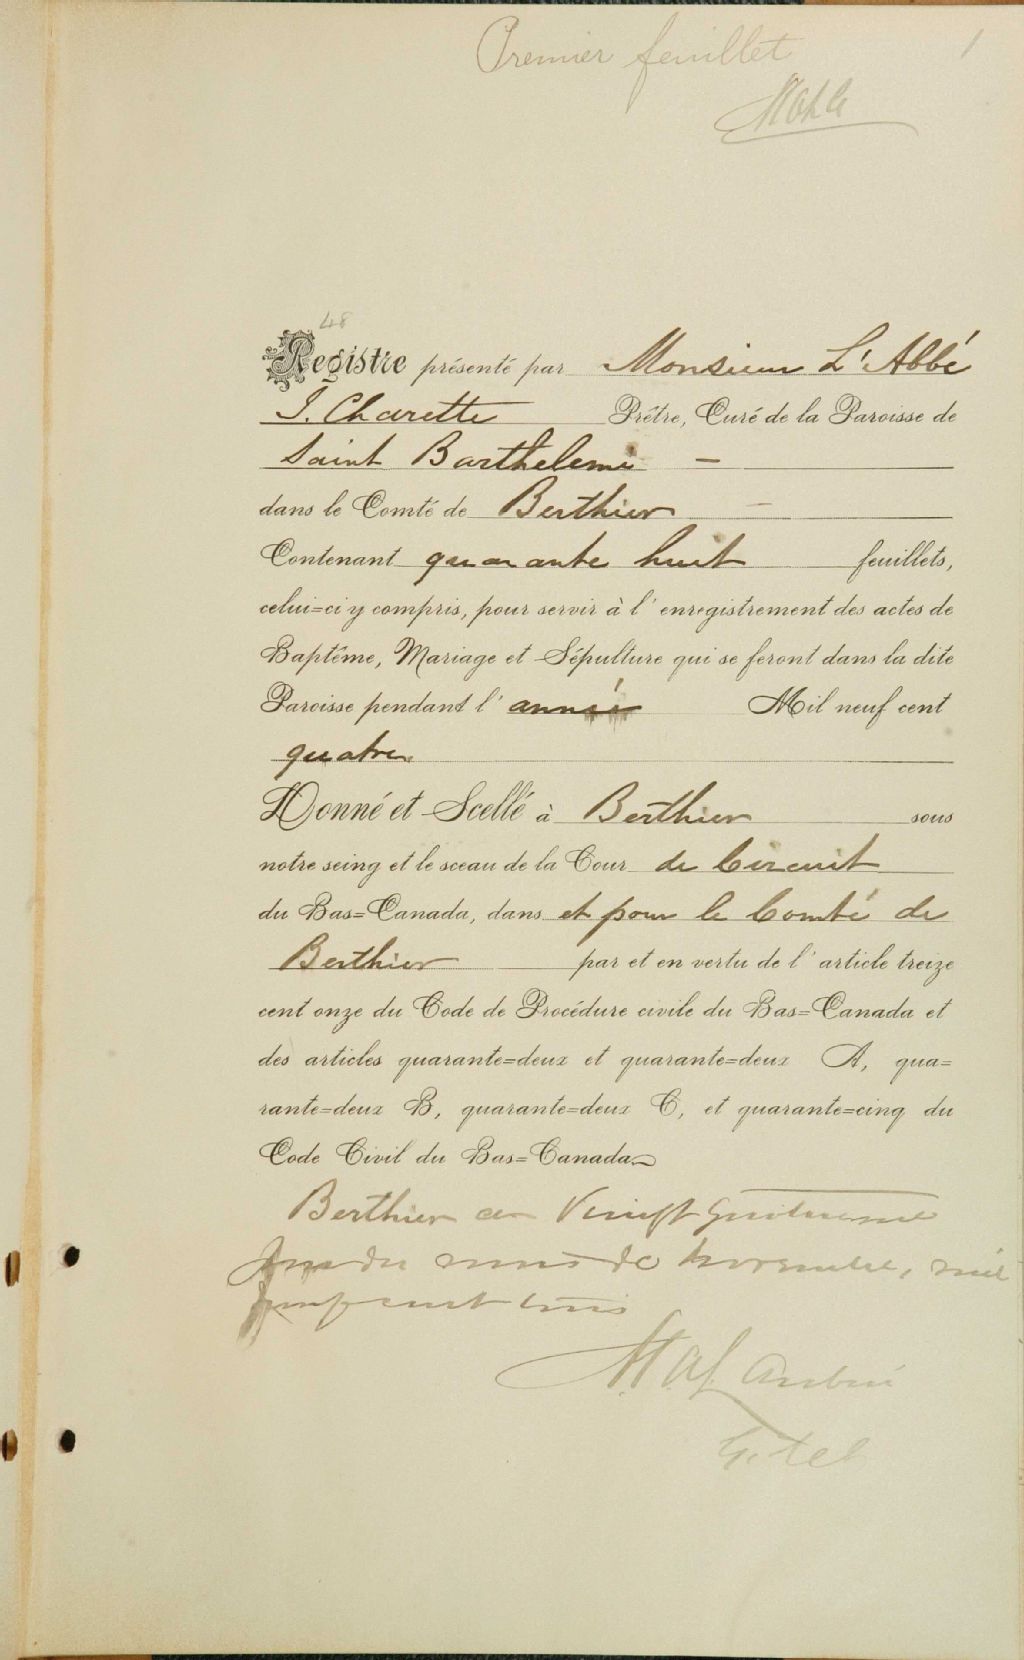 Premier feuillet
1
48
Registre présenté par Monsieur L'Abbé
J. Charette Prêtre, Curé de la Paroisse de
Saint Barthelemi –
dans le Comté de Berthier –
Contenant quarante huit feuillets,
celui=ci y compris, pour servir à l'enregistrement des actes de
Baptême, Mariage et Sépulture qui se feront dans la dite
Paroisse pendant l'année Mil neuf cent
quatre
Donné et Scellé à Berthier sous
notre seing et le sceau de la Cour de Circuit
du Bas=Canada, dans et pour le Comté de
Berthier par et en vertu de l'article treize
cent onze du Code de Procédure civile du Bas=Canada et
des articles quarante=deux et quarante=deux A, qua=
rante=deux B, quarante=deux C, et quarante=cinq du
Code Civil du Bas=Canada.
Berthier ce Vingt
jour du mois de novembre, mil
neuf cent trois